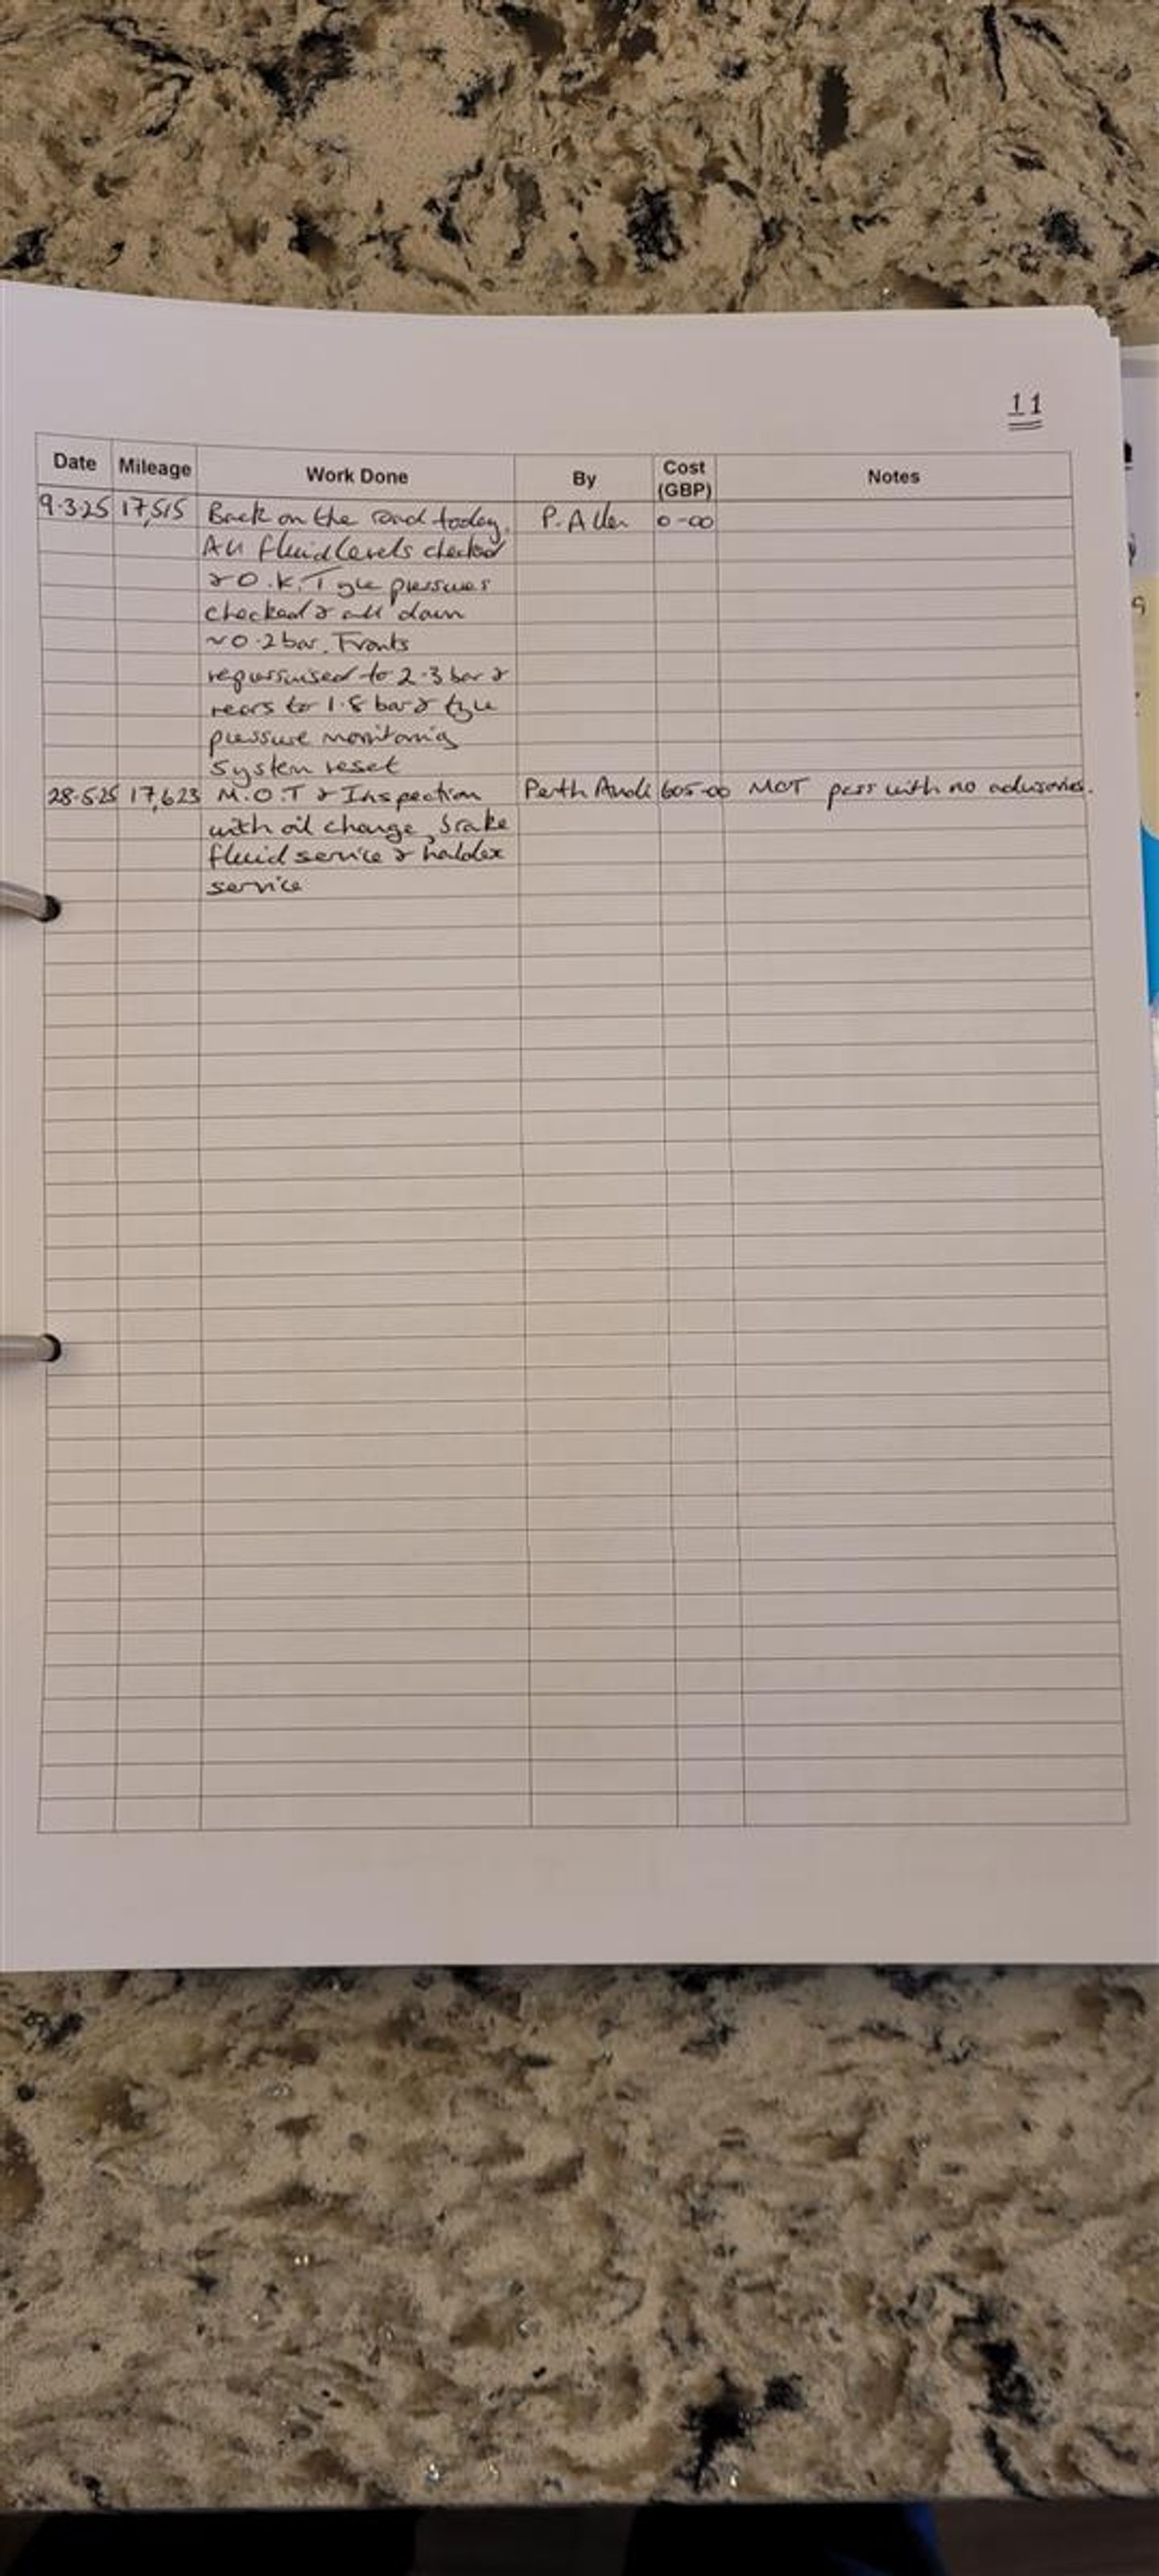 11
Date Mileage Work Done By Cost (GBP) Notes
9.3.25 17,515 Back on the road today. P. Allen 0-00
All fluid levels checked
& O.K. Tyre pressures
checked & all down
~0.2 bar. Fronts
repressurised to 2.3 bar &
rears to 1.8 bar & tyre
pressure monitoring
system reset
28.5.25 17,623 M.O.T & Inspection Perth Audi 605-00 MOT pass with no advisories.
with oil change, brake
fluid service & haldex
service